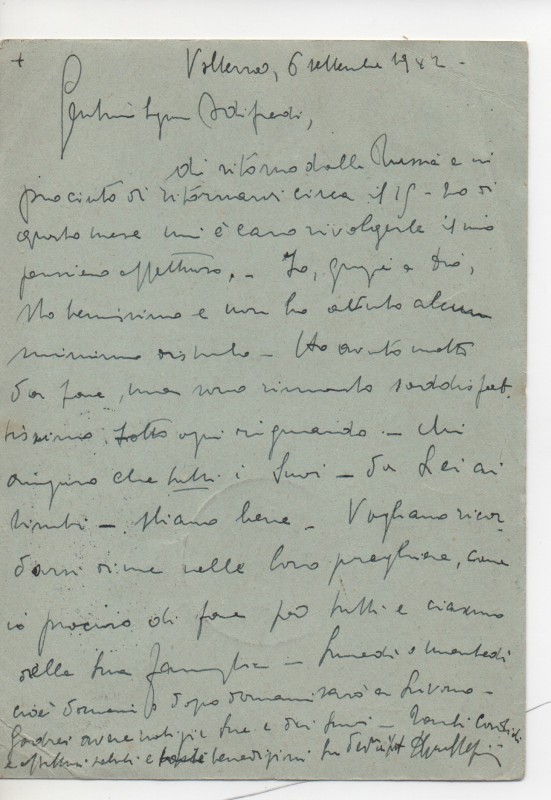 +
Volterra, 6 settembre 1942 -
Gentma Sigra Adifredi,
di ritorno dalla Russia e in
procinto di ritornarvi circa il 15-20 di
questo mese mi è caro rivolgerle il mio
pensiero affettuoso. - Io, grazie a Dio,
sto benissimo e non ho avuto alcun
minimo disturbo - Ho avuto molto
da fare, ma sono rimasto soddisfat-
tissimo sotto ogni riguardo. - Mi
auguro che tutti i Suoi - da Lei ai
bimbi - stiano bene - Vogliano ricor-
darsi di me nelle loro preghiere, come
io procuro di fare per tutti e ciascuno
della Sua famiglia - Lunedì e martedì
cioè domani e dopodomani sarò a Livorno -
Gradirei avere notizie Sue e dei Suoi - Tanti cordiali
e affettuosi saluti e benedizioni